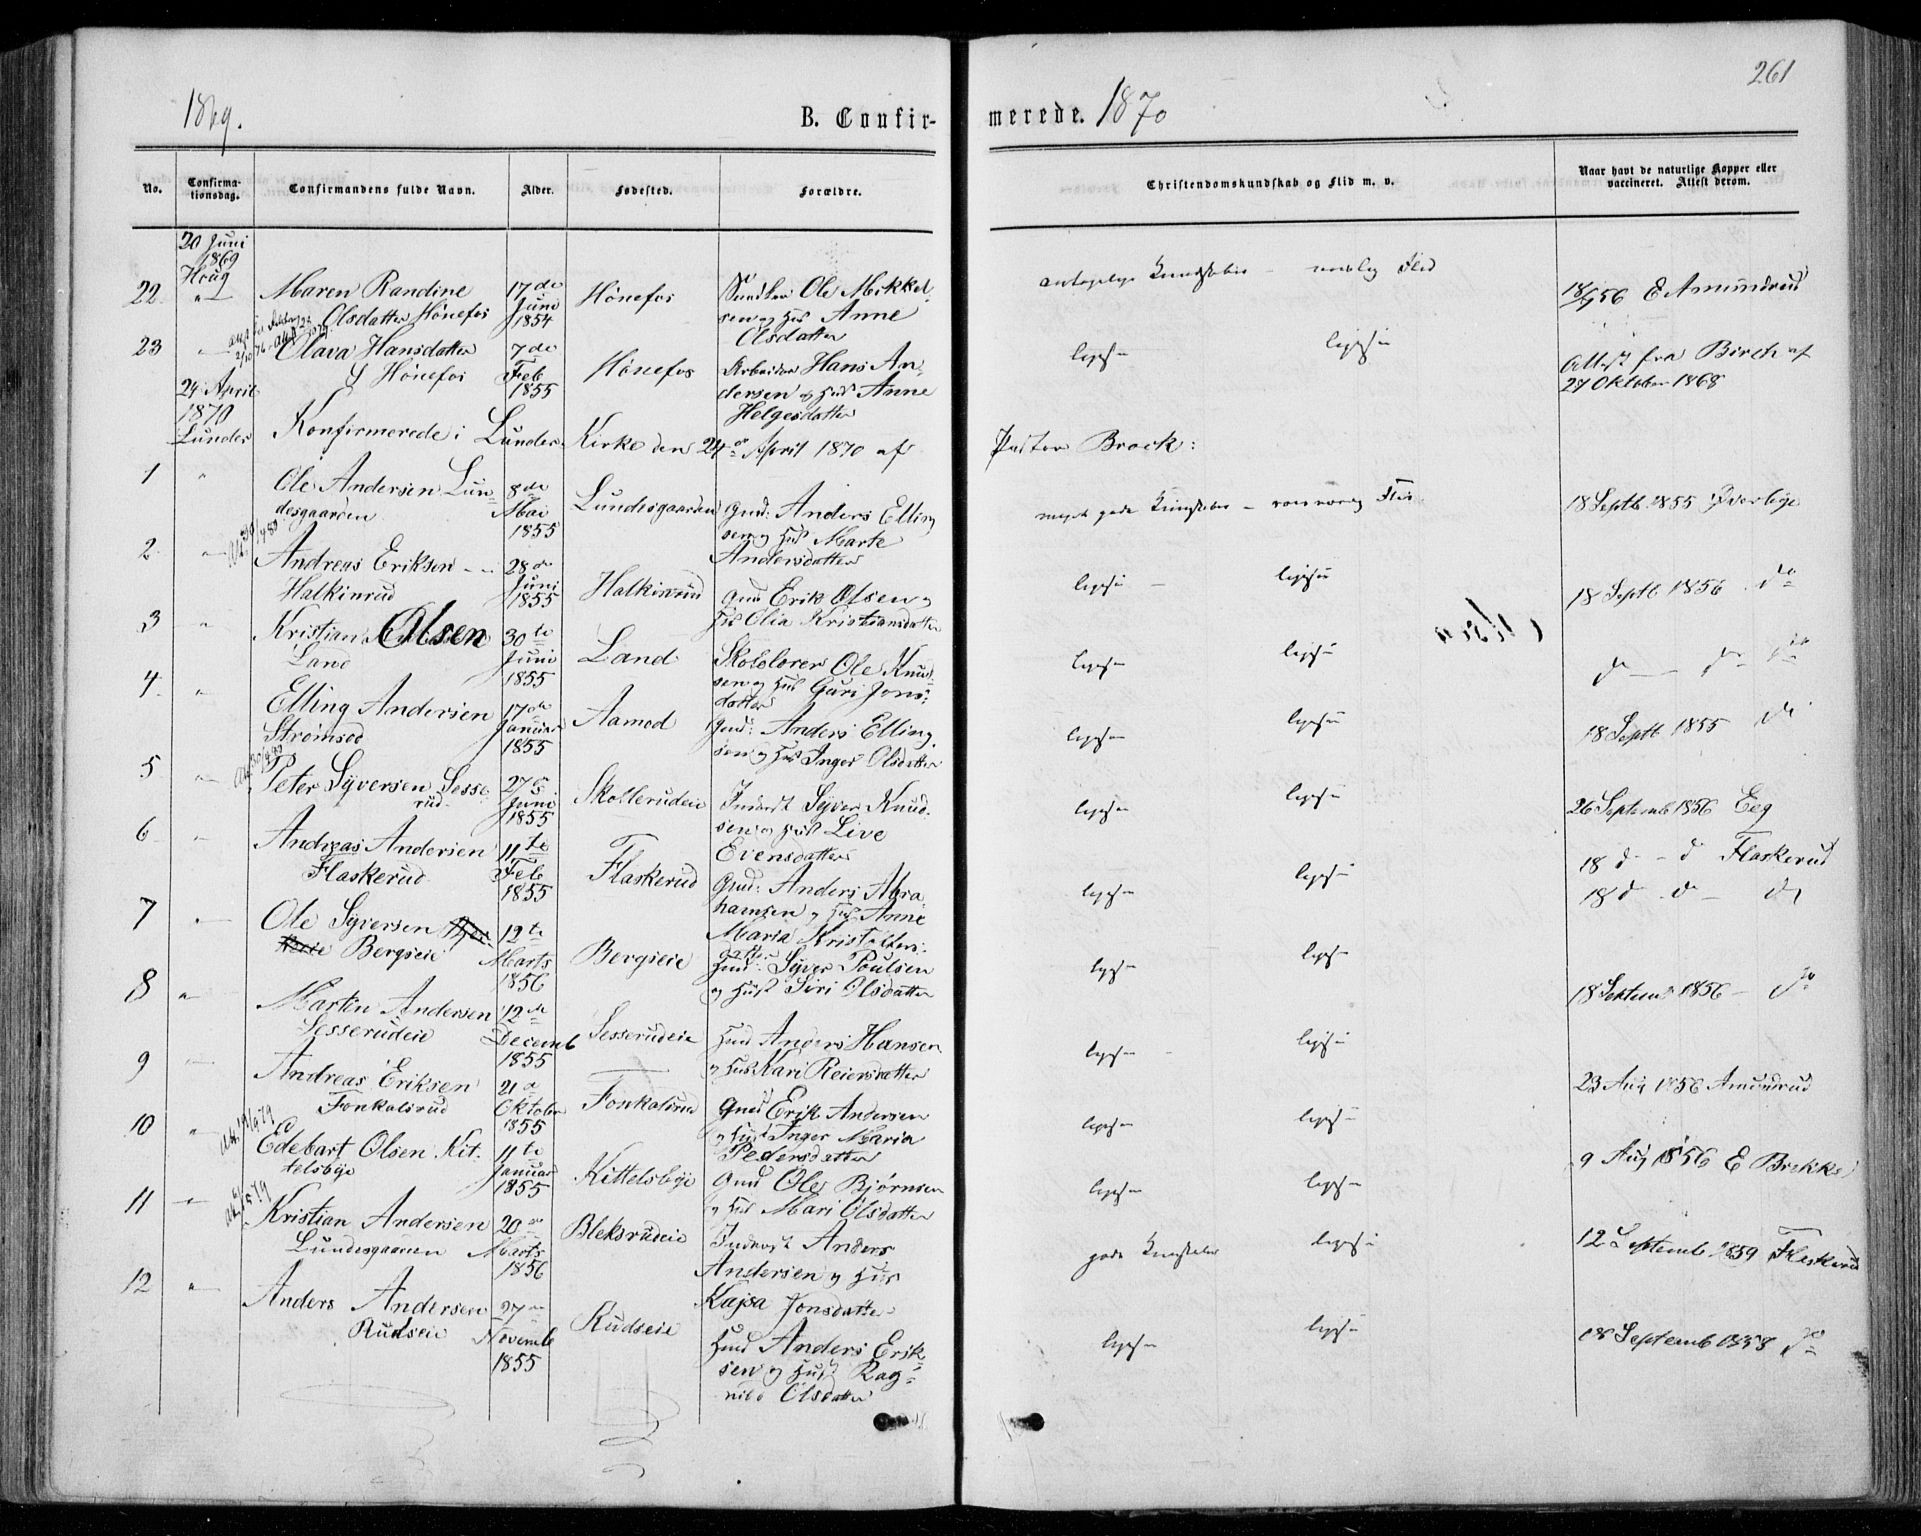 261
1869.
B. Confirmerede. 1870
No.
Confirmationsdag.
Confirmandens fulde Navn.
Alder.
Fødested.
Forældre.
Christendomskundskab og Flid m. v.
Naar havt de naturlige Kopper eller
vaccineret. Attest derom.
20 Juni
1869
Houg
22 " Maren Randine 17de Hønefos Ole Mikkel-
Olsdatter Hønefos Juni sen og Hus Anne
1854 Olsdatter
Kundskaber - Flid
18/9 56 E Amundrud
23 " Olava Hansdatter 7de Hønefos Arbeider Hans An-
Hønefos Feb dersen og Hus Anne
1855 Helgesdatter
ligesaa ligesaa
Attest fra Birch af
27 Oktober 1868
24 April
1870
Lunder
Konfirmerede i Lunder Kirke den 24de April 1870 af Pastor Brock:
1 " Ole Andersen Lun- 8de Lundesgaarden Gmd: Anders Elling
desgaarden Mai sen og Hus Marte
1855 Andersdatter
meget gode Kundskaber - Flid
18 Septb 1855 Øverbye
2 " Andreas Eriksen 28de Halkinrud Gmd Erik Olsen og
Halkinrud Juni Hus Olia Kristiansdatter
1855
ligesaa ligesaa
18 Septb 1856 do
3 " Kristian Olsen 30te Land Skolelærer Ole Knud-
Land Juni sen og Hus Guri Jons-
1855 datter
ligesaa ligesaa
do do do
4 " Elling Andersen 17de Aamod Gmd: Anders Elling
Strømsod Januar sen og Hus Inger Olsdatter
1855
ligesaa ligesaa
18 Septb 1855 do
5 " Peter Syversen Sesse- 27de Skollerudeie Inderst Syver Knud-
rud Juni sen og Hust Live
1855 Evensdatter
ligesaa ligesaa
26 Septemb 1856 Eeg
6 " Andreas Andersen 11te Flaskerud Gmd: Anders Abra-
Flaskerud Feb hamsen og Hus Anne
1855 Maria Kristoffers-
datter
ligesaa ligesaa
18 d - d Flaskerud
18 d d - do
7 " Ole Syversen 12te Bergseie Husmd: Syver Poulsen
Bergseie Marts og Hust Siri Olsdatter
1856
ligesaa ligesaa
18 Septemb 1856 - do
8 " Martin Andersen 12te Sesserudeie Husmd Anders Hansen
Sesserudeie Decemb og Hus Kari Reiersdatter
1855
ligesaa ligesaa
9 Andreas Eriksen 21de Fonkalsrud Gmd Erik Andersen
Fonkalsrud Oktober og Hust Inger Maria
1855 Pedersdatter
ligesaa ligesaa
23 Aug 1856 Amundrud
10 " Edebart Olsen Kit- 11te Kittelsbye Gmd Ole Bjørnsen
telsbye Januar og Hus Mari Olsdatter
1855
ligesaa ligesaa
9 Aug 1856 E Brekke
11 " Kristian Andersen 20de Bleksrudeie Inderst Anders
Lundesgaarden Marts Andersen og Hus
1856 Kajsa Jonsdatter
gode Kundskaber ligesaa
12 Septemb 1859 Flaskerud
12 " Anders Andersen 27de Rudseie Husmd Anders Erik-
Rudseie Novemb sen og Hust Rag-
1855 nild Olsdatter
ligesaa ligesaa
18 Septemb 1858 do